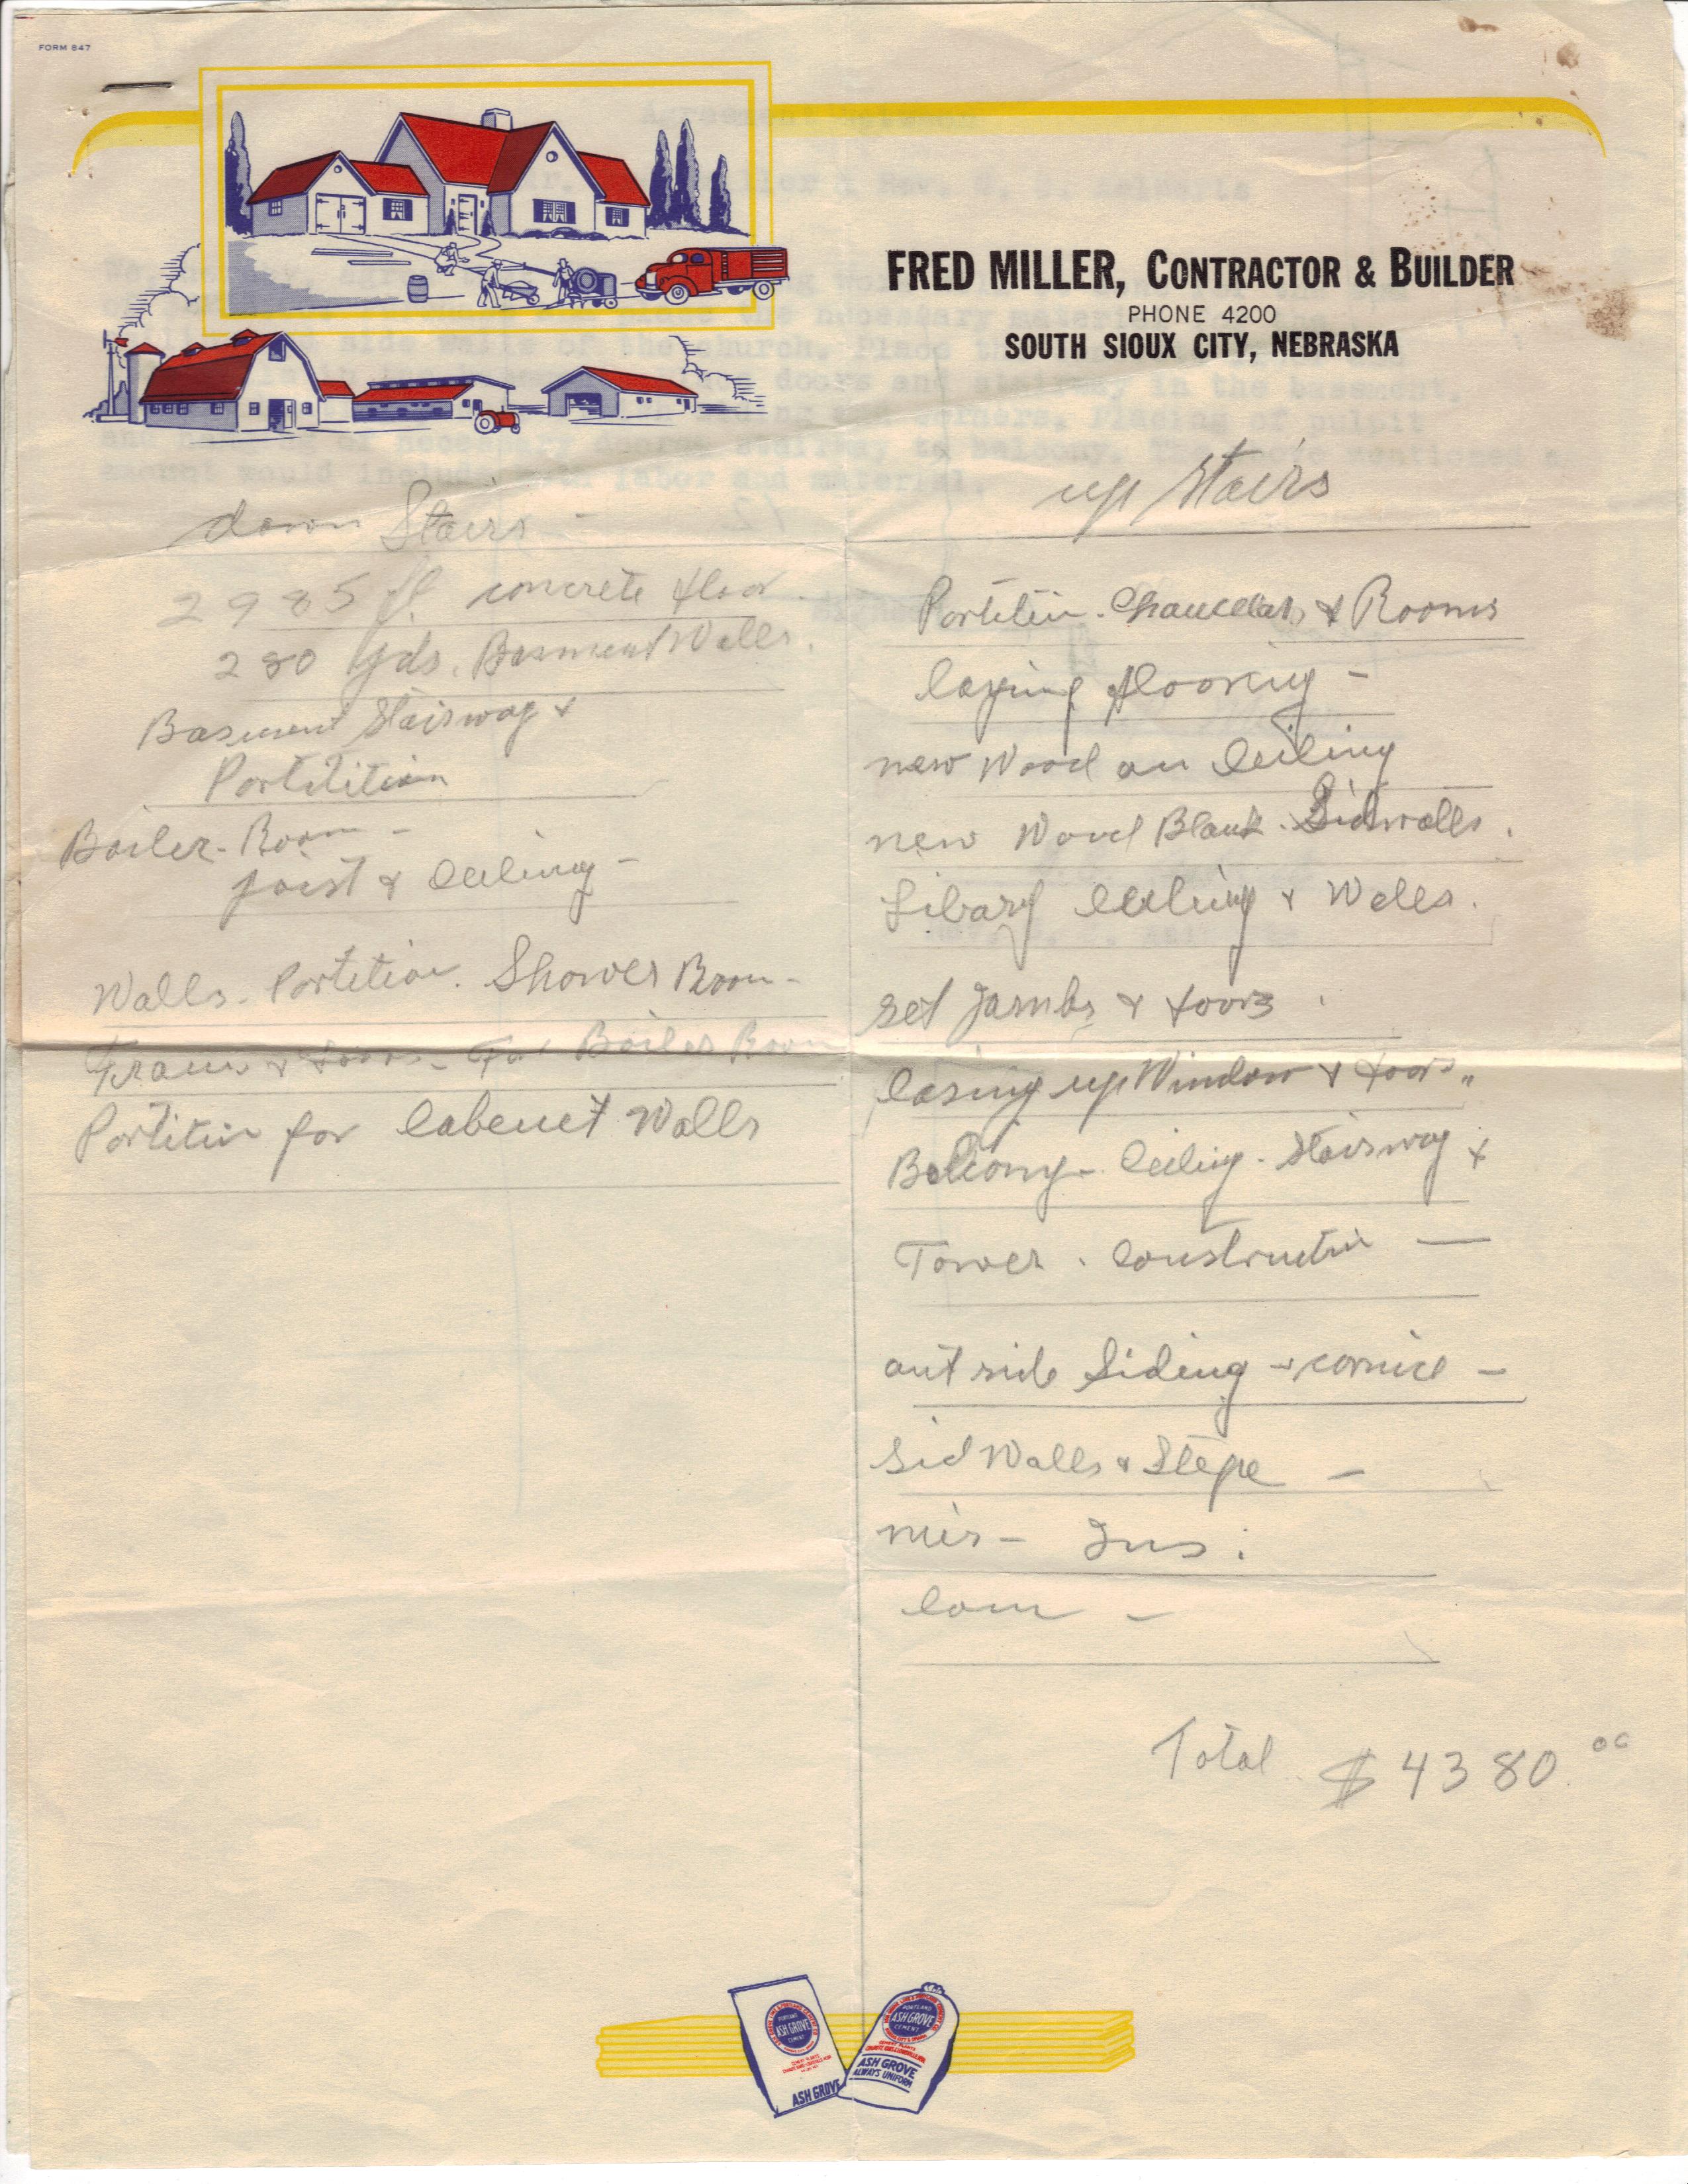 FORM 847
FRED MILLER, CONTRACTOR & BUILDER
PHONE 4200
SOUTH SIOUX CITY, NEBRASKA
down Stairs -
2985 ft concrete floor.
280 yds. Basment Walls.
Basment Stairway &
Portitition
Boiler-Room -
joist & Ceiling -
Walls - Portition. Shower Room -
Frams & Doors - For Boiler Room
Portition for Cabenet Walls
up Stairs
Portition - & Rooms
laying flooring -
new Wood on Ceiling
new Wood Blank. Sidwalls.
Libary Ceiling & Walls.
set Jambs & Doors.
Casing up Window & Doors "
Balcony - Ceiling - Stairway &
Tower. Construction —
out side Siding & cornice -
Sid Walls & Stepe -
mis - Ins:
Com -
Total $4380 00
PORTLAND
ASH GROVE
CEMENT
ASH GROVE
PORTLAND
ASH GROVE
CEMENT
ASH GROVE
ALWAYS UNIFORM